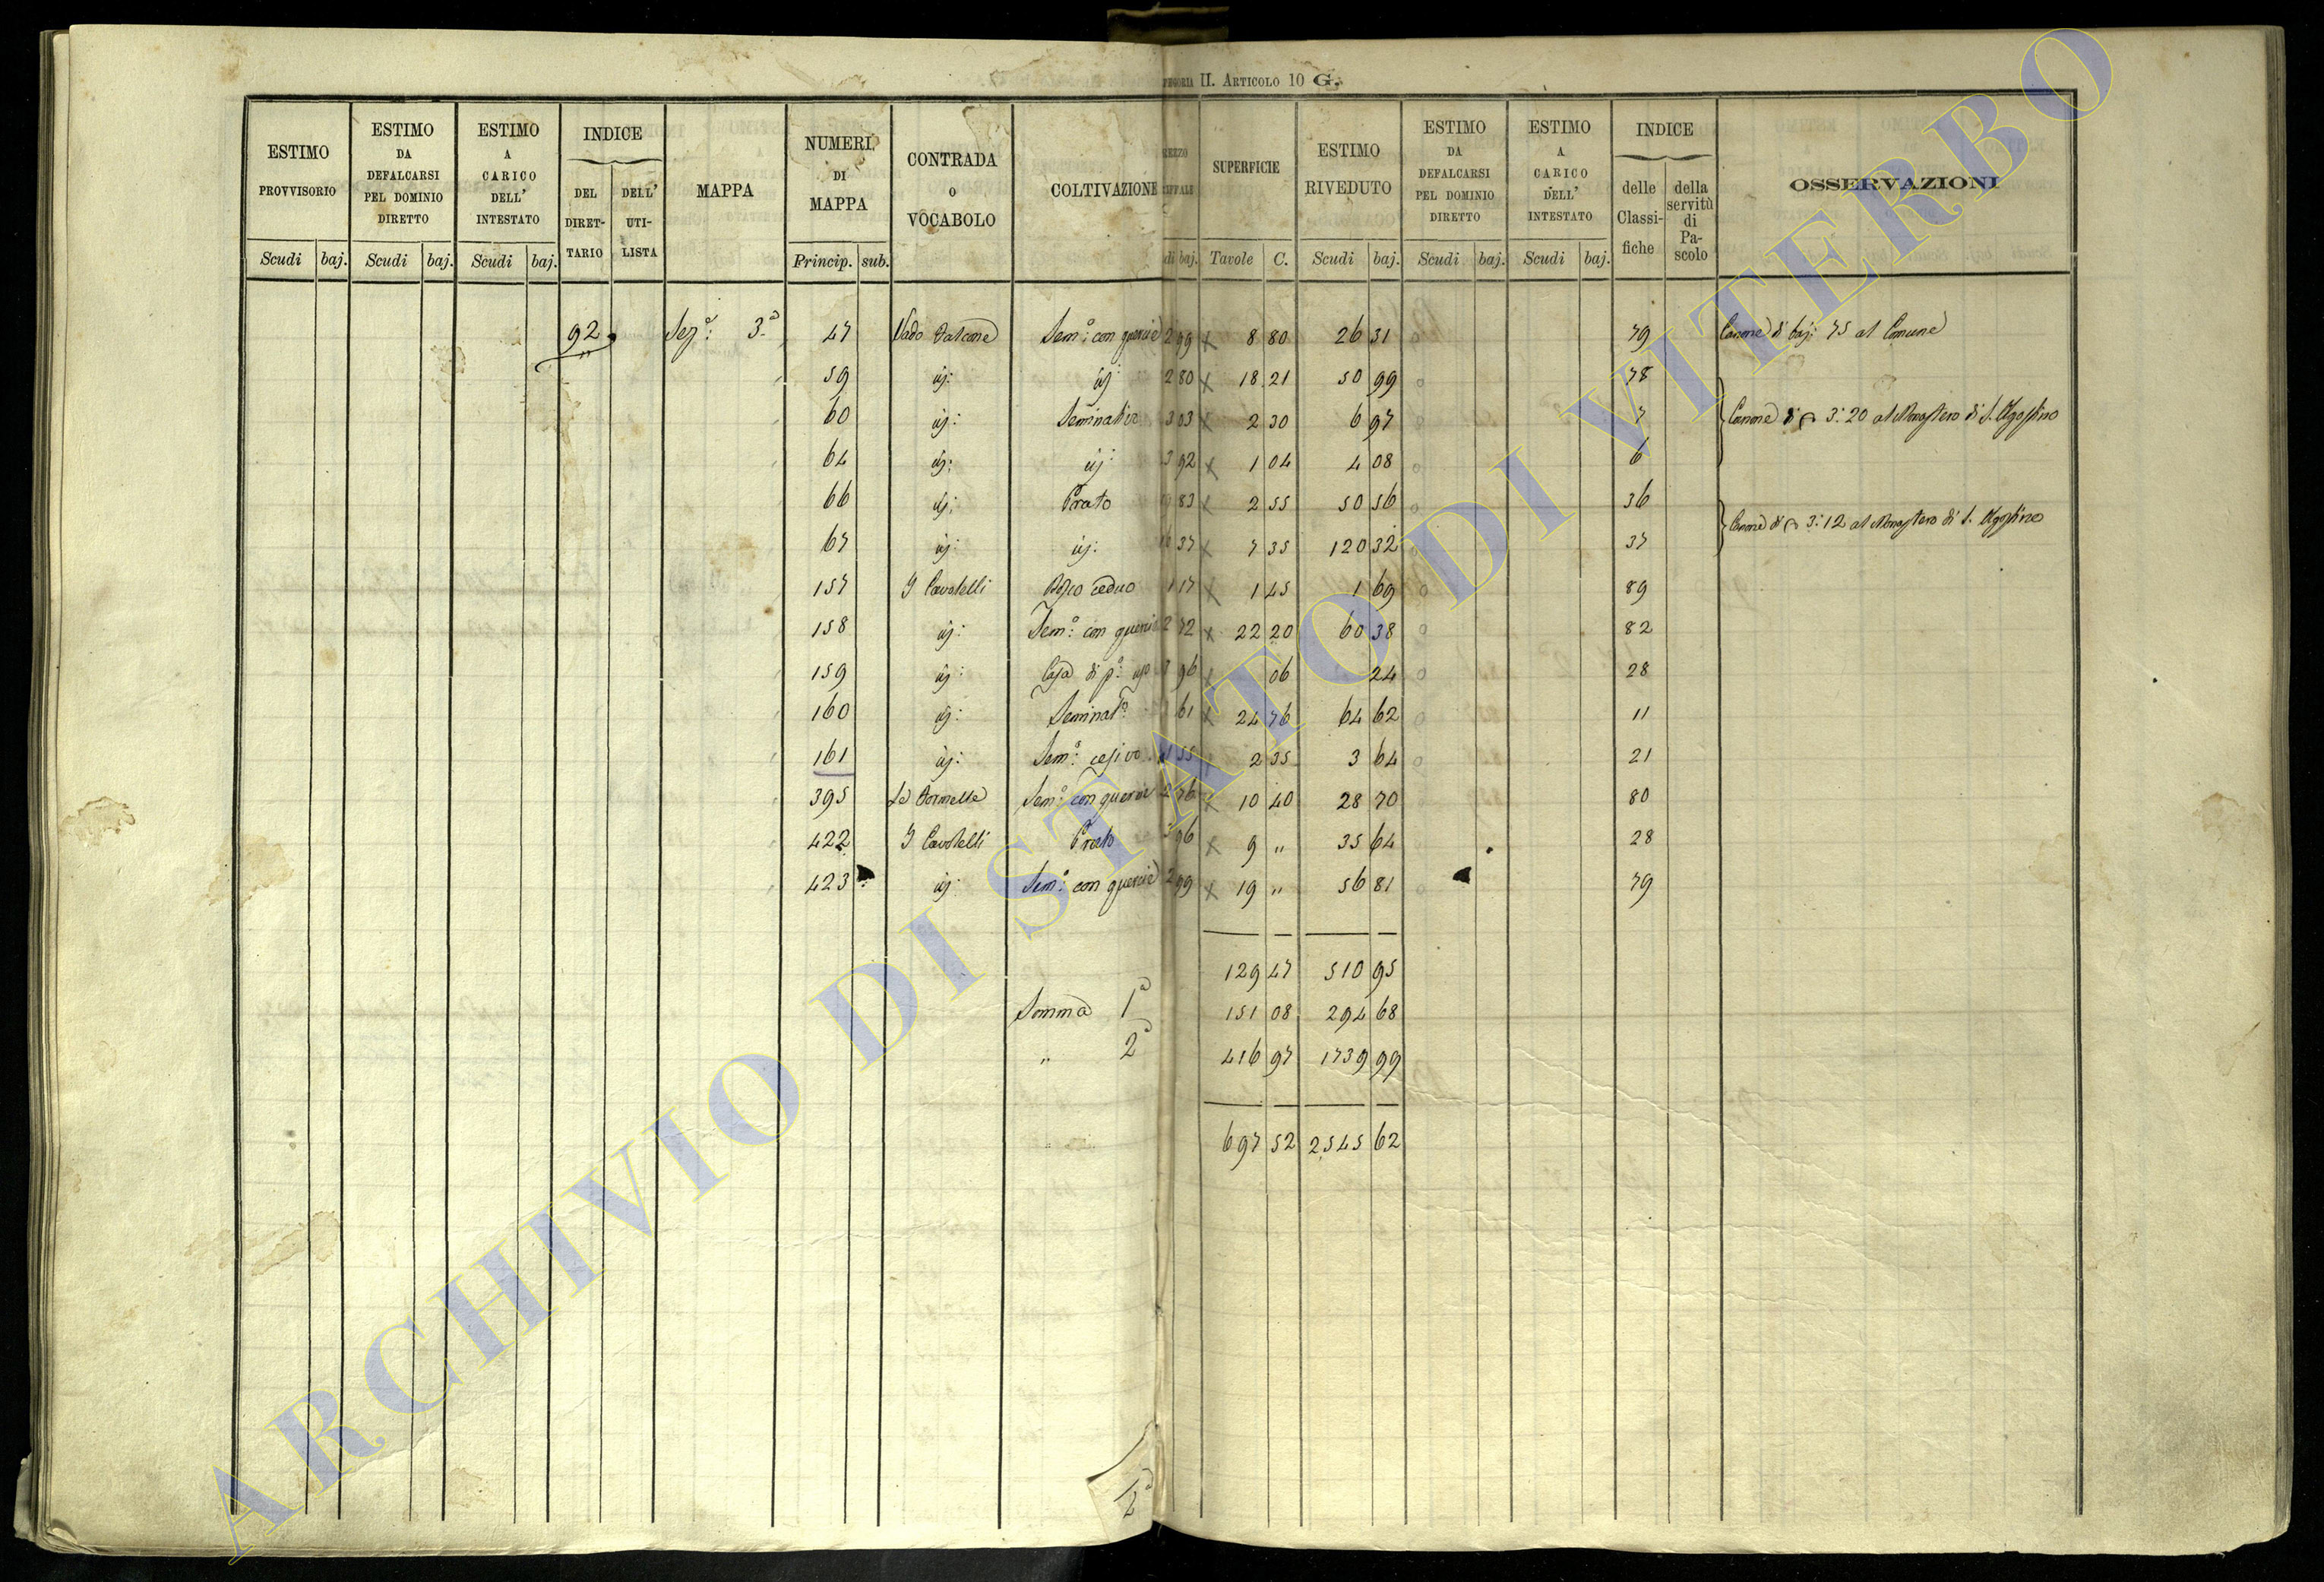 EGORIA II. ARTICOLO 10 G.
ESTIMO PROVVISORIO
ESTIMO DA DEFALCARSI PEL DOMINIO DIRETTO
ESTIMO A CARICO DELL' INTESTATO
INDICE
DEL DIRET-TARIO
DELL' UTI-LISTA
MAPPA
NUMERI DI MAPPA
CONTRADA O VOCABOLO
COLTIVAZIONE
SUPERFICIE
ESTIMO RIVEDUTO
ESTIMO DA DEFALCARSI PEL DOMINIO DIRETTO
ESTIMO A CARICO DELL' INTESTATO
INDICE
delle Classi-fiche
della servitù di Pa-scolo
OSSERVAZIONI
Scudi baj. Scudi baj. Scudi baj. Princip. sub. di baj. Tavole C. Scudi baj. Scudi baj. Scudi baj.
92 Sezª: 3ª 47 Vado Semº: con quercie 2 99 x 8 80 26 31 79 Canone di baj: 75 al Comune
59 iij: iij 2 80 x 18 21 50 99 78
60 iij: 3 03 x 2 30 6 97 7 Canone di 3:20 al Monastero di S. Agostino
64 iij: iij 3 92 x 1 04 4 08 6
66 iij: Prato 83 x 2 55 50 56 36
67 iij: iij: 37 x 7 35 120 32 37 Canone di 3:12 al Monastero di S. Agostino
157 I Cavolelli Bosco ceduo 1 17 x 1 45 1 69 89
158 iij: Semº: con quercie 2 72 x 22 20 60 38 82
159 iij: Casa di pº: uso 3 96 x 06 24 28
160 iij: Seminatº 61 x 24 76 64 62 11
161 iij: Semº: cesivo 1 55 2 35 3 64 21
395 Semº: con quercie 2 76 x 10 40 28 70 80
422 I Cavolelli Prato 3 96 x 9 " 35 64 28
423 iij: Semº: con quercie 2 99 x 19 " 56 81 79
129 47 510 95
Somma 1ª 151 08 294 68
" 2ª 416 97 1739 99
697 52 2545 62
ARCHIVIO DI STATO DI VITERBO